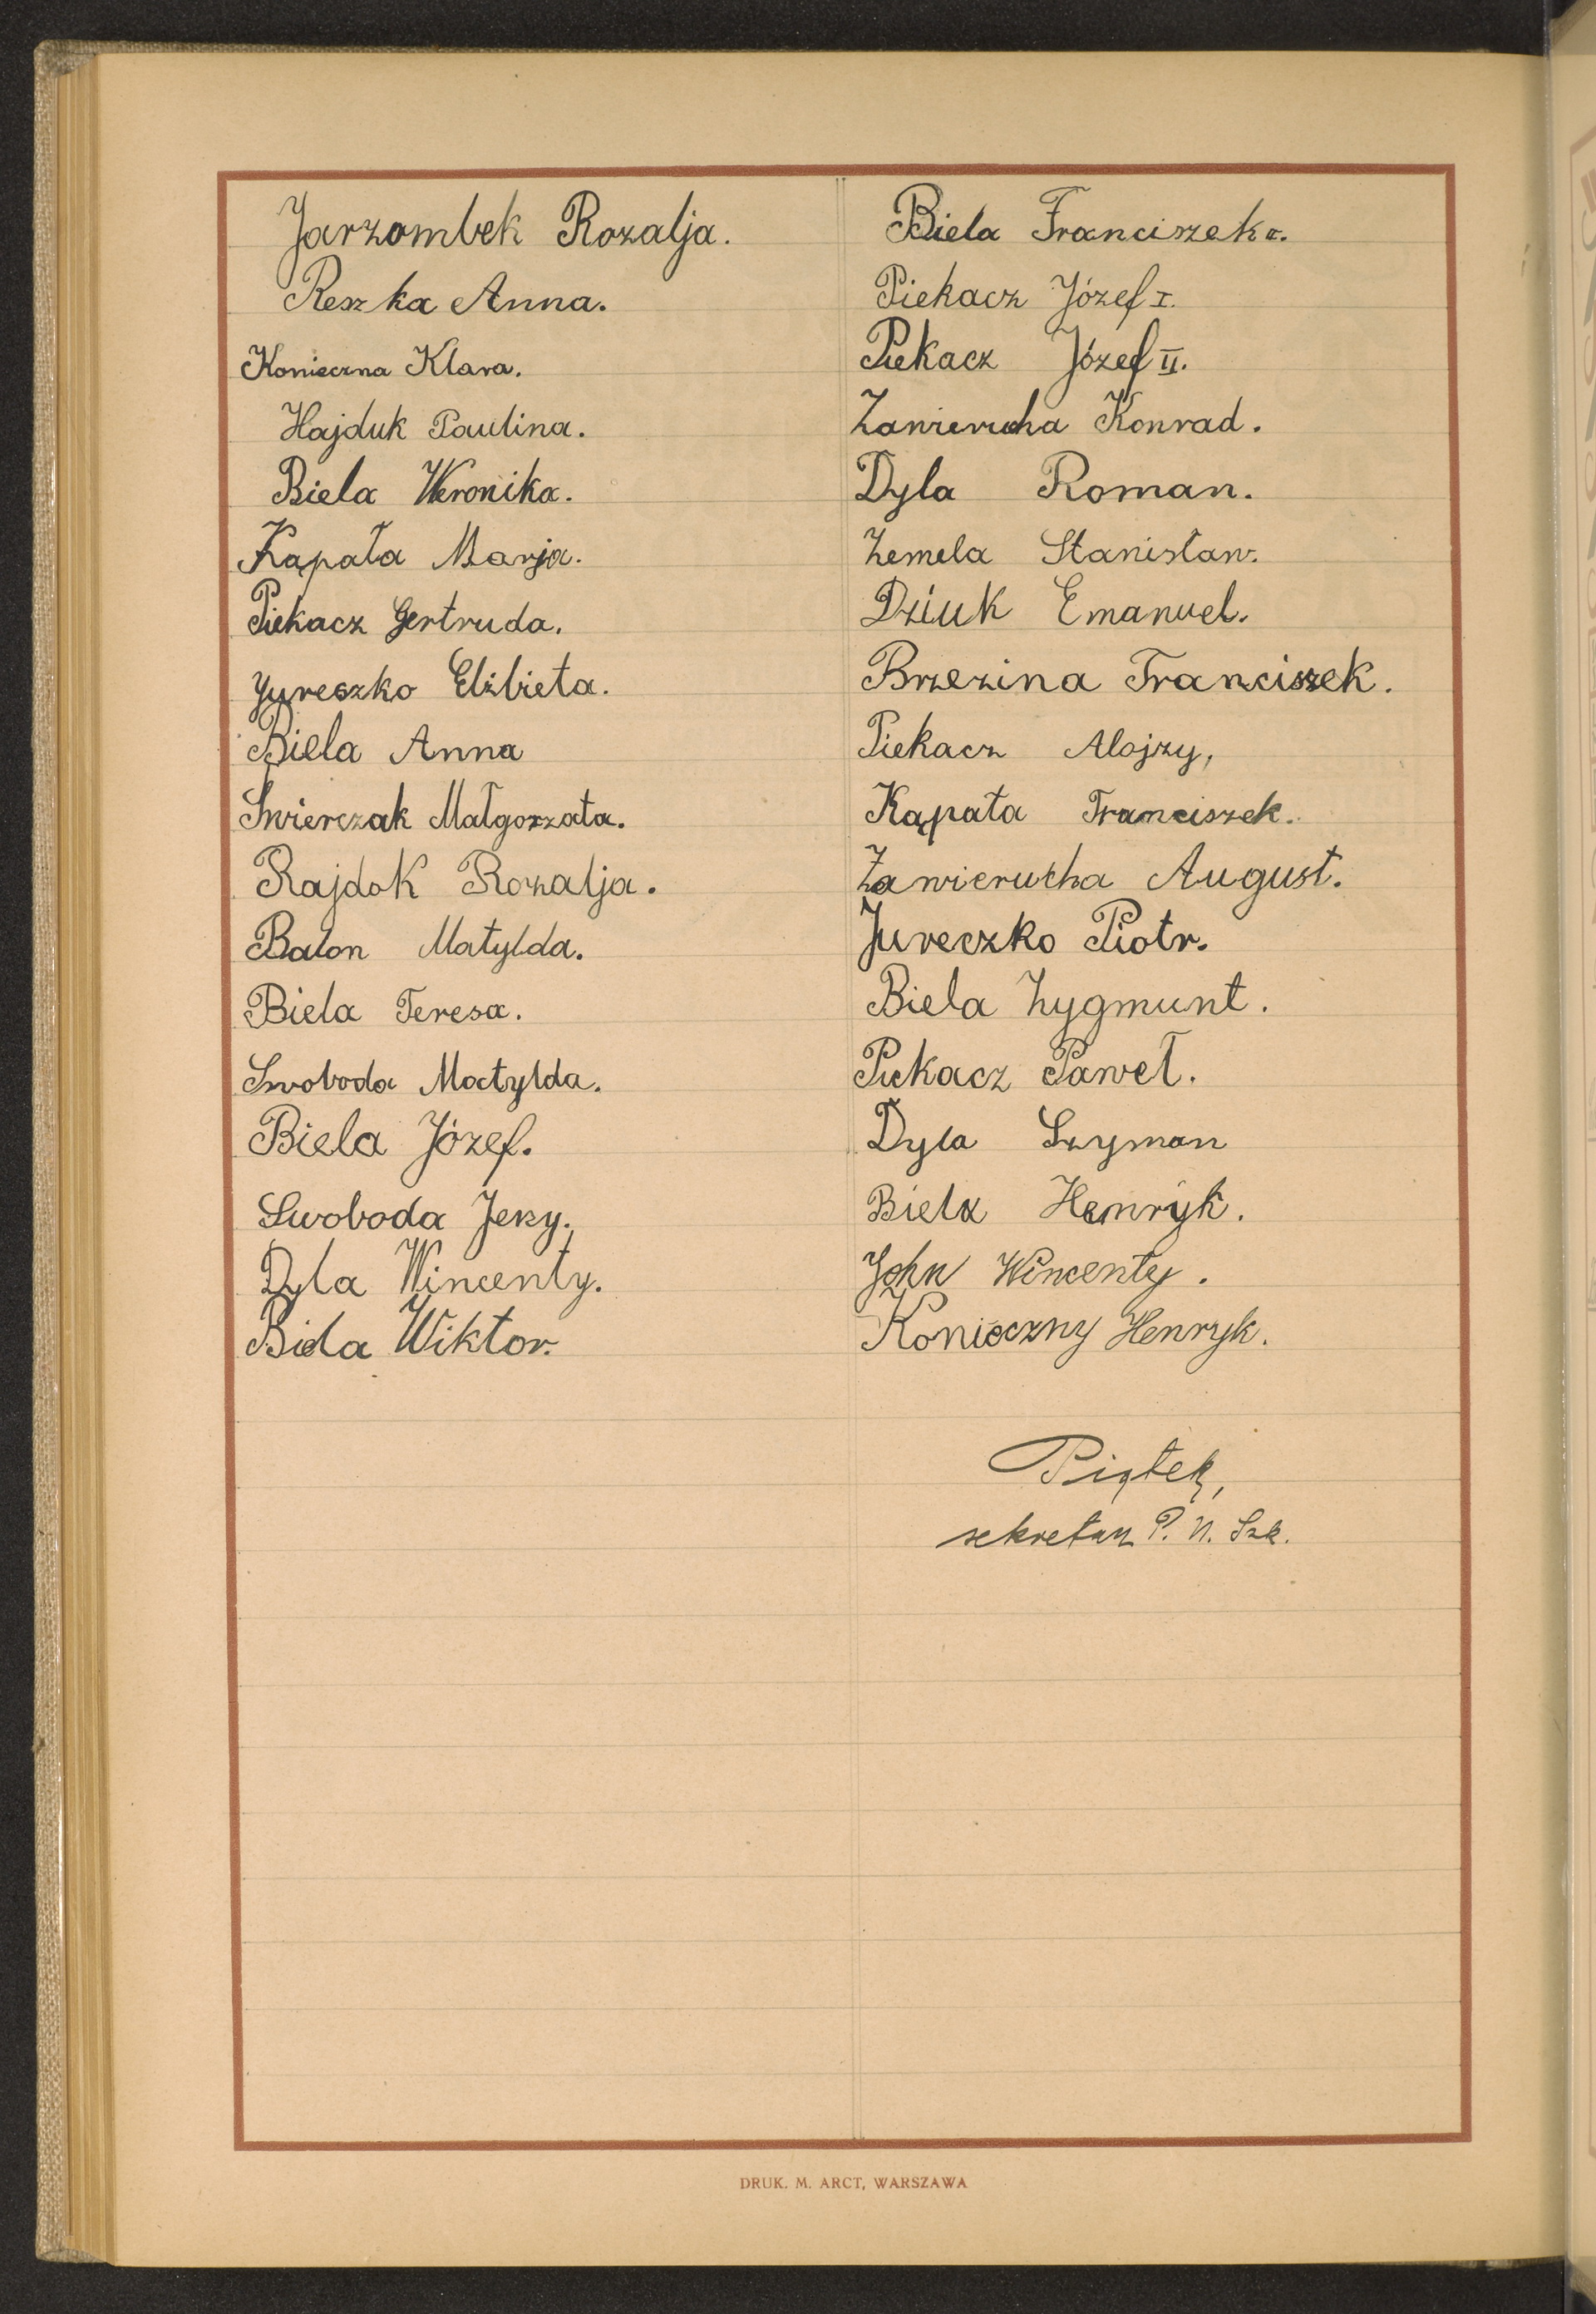 Jarzombek Rozalja.
Reszka Anna.
Konieczna Klara.
Hajduk Paulina.
Biela Weronika.
Kąpała Marja.
Piekacz Gertruda.
Jureszko Elżbieta.
Biela Anna
Swierczak Małgorzata.
Rajdok Rozalja.
Balon Matylda.
Biela Teresa.
Swoboda Matylda.
Biela Józef.
Swoboda Jerzy.
Dyla Wincenty.
Biela Wiktor.
Biela Franciszek II.
Piekacz Józef I.
Piekacz Józef II.
Zawierucha Konrad.
Dyla Roman.
Zemela Stanisław.
Dziuk Emanuel.
Brzezina Franciszek.
Piekacz Alojzy,
Kąpała Franciszek.
Zawierucha August.
Jureczko Piotr.
Biela Zygmunt.
Piekacz Paweł.
Dyla Szymon
Biela Henryk.
John Wincenty.
Konieczny Henryk.
Piątek,
sekretarz P. N. Szk.
DRUK. M. ARCT, WARSZAWA